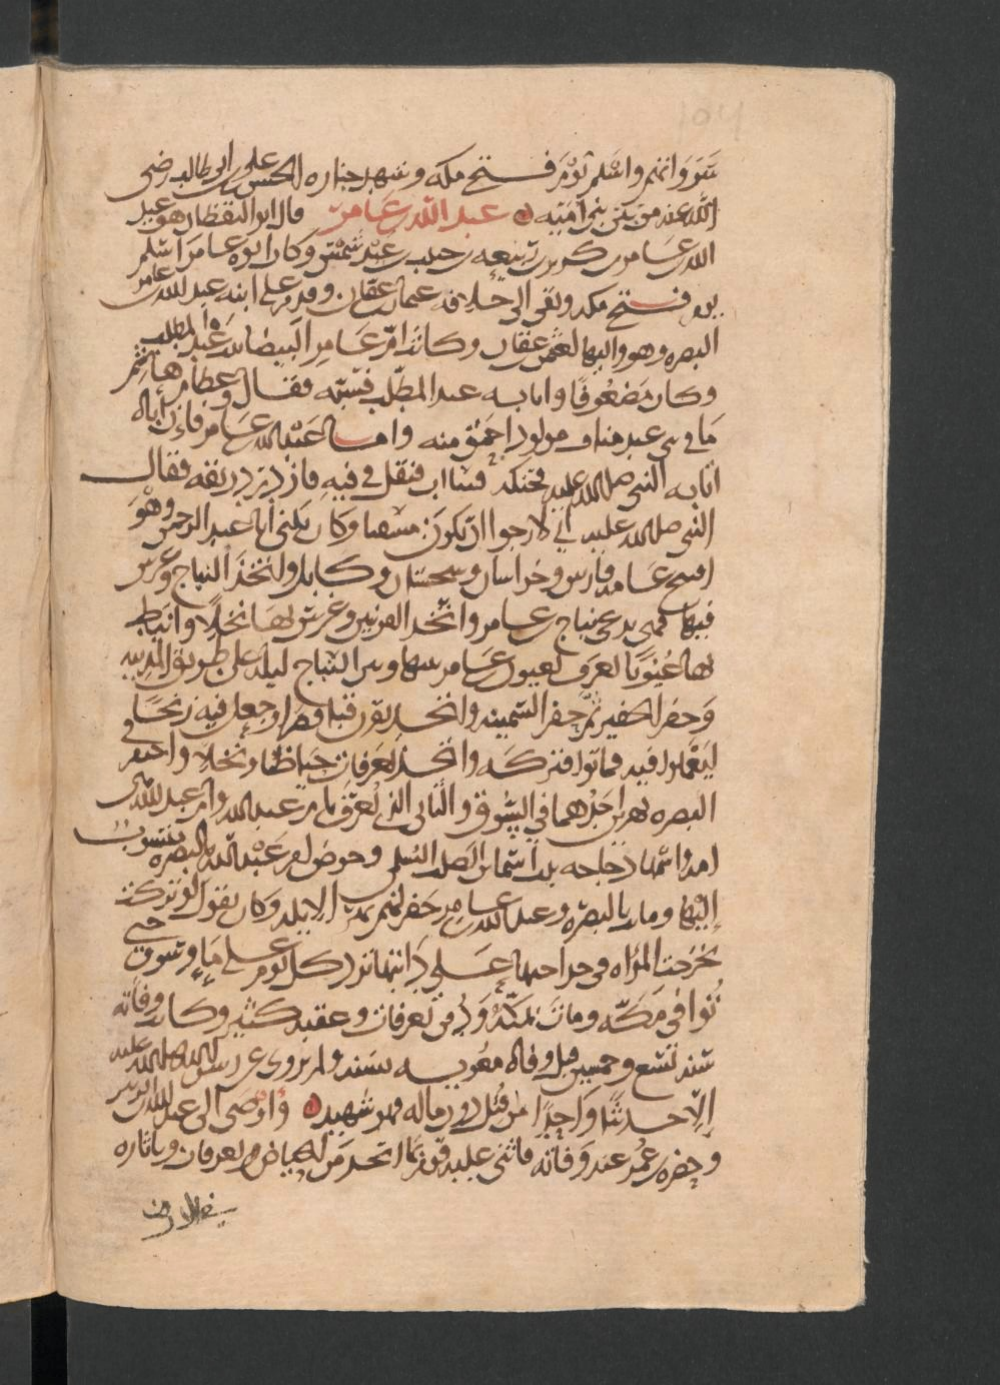 واسلم يوم فتح مكه وشهد جنازه الحسن بن علي بن ابي طالب رضى
الله عنه من بين بني اميه عبد الله بن عامر قال ابو اليقظان هو عبد
الله بن عامر بن كريز بن ربيعه بن حبيب بن عبد شمس وكان ابوه عامر اسلم
يوم فتح مكه وبقى الى خلافه عثمان بن عفان وقدم على ابنه عبد الله بن عامر
البصره وهو واليها لعثمن بن عفان وكانت ام عامر البيضا بنت عبد المطلب
وكان مضعوفا واتا به عبد المطلب فقال وعظام هاشم
ما في بني عبد مناف مولود احمق منه واما عبد الله بن عامر فان اباه
اتا به النبي صلى الله عليه فحنكه فتثااب فتفل في فيه فازدرد ريقه فقال
النبي صلى الله عليه اني لارجوا ان يكون مسقيا وكان يكنى ابا عبد الرحمن وهو
افتتح عامه فارس وخراسان وسجستان وكابل واتخذ النباج وغرس
فيها فهي تدعى نباج بن عامر واتخذ القريتين وغرس بها نخلا وانبط
بها عيونا تعرف بعيون بن عامر بينها وبين النباج ليله على طريق المدينه
وحفر الحفير ثم حفر السمينه واتخذ بقرب قبا قصرا وجعل فيه زنجا
ليعملوا فيه فماتوا فتركه واتخذ بعرفات حياضا ونخلا واحتفر في
البصره نهرين احدهما في السوق والثاني الذي يعرف بام عبد الله وام عبد الله هي
امه واسمها دجاجه بنت اسما بن الصلت السلمي وحوض ام عبد الله بالبصره منسوب
اليها وماتت بالبصره وعبد الله بن عامر حفر نهر الابله وكان يقول لو تركت
لخرجت المراه في حداجتها على دابتها ترد كل يوم على ما وسوق حتى
توافي مكه ومات بمكه ودفن بعرفات وعقبه كثير وكانت وفاته
سنه تسع وخمسين قبل وفاه معويه بسنه ولم يروى عن رسول الله صلى الله عليه
الا حديثا واحدا من قتل دون ماله فهو شهيد واوصى الى عبد الله بن الزبير
وحضره بن عمر عند وفاته فاثنى عليه قوم بما اتخذ من الحياض بعرفات وباثاره
في الارض